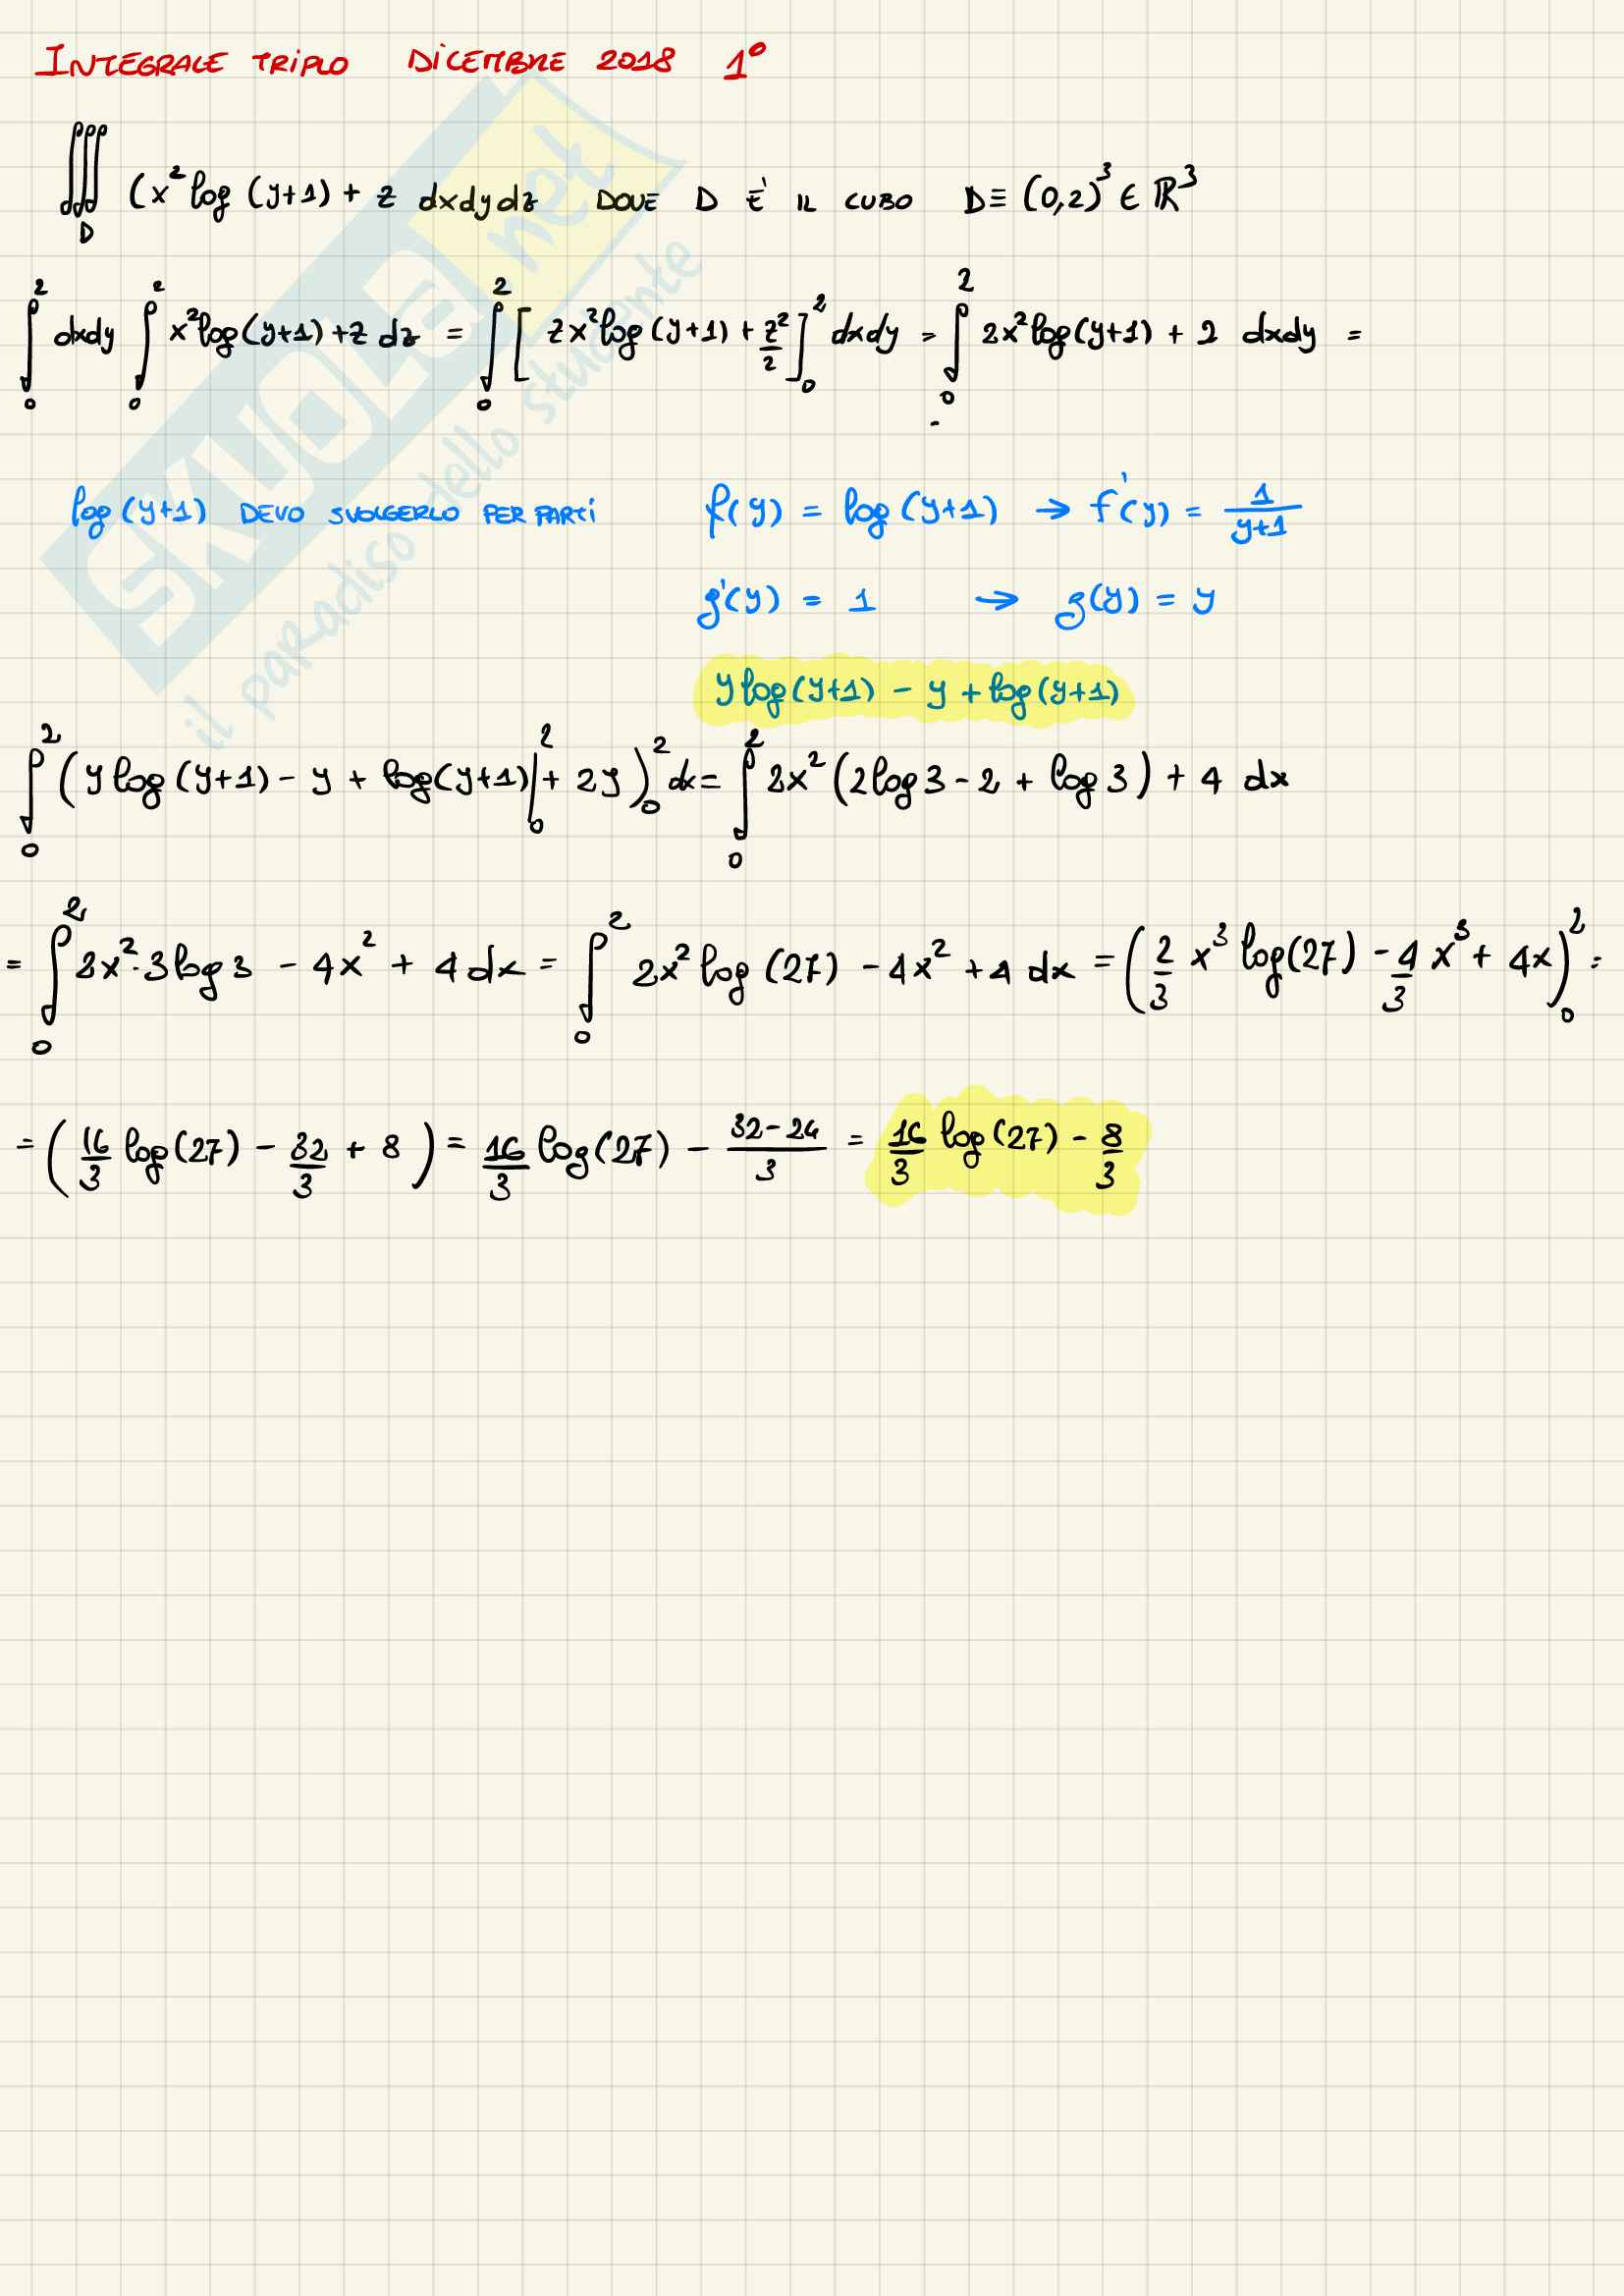 INTEGRALE TRIPLO DICEMBRE 2018 1°
∭_D (x² log (y+1) + z dxdydz DOVE D E' IL CUBO D≡ (0,2)³ ∈ ℝ³
∫_0^2 dxdy ∫_0^2 x² log(y+1) + z dz = ∫_0^2 [ z x² log (y+1) + z²/2 ]_0^2 dxdy = ∫_0^2 2x² log(y+1) + 2 dxdy =
log (y+1) DEVO SVOLGERLO PER PARTI f(y) = log (y+1) → f'(y) = 1/(y+1)
g'(y) = 1 → g(y) = y
y log(y+1) - y + log(y+1)
∫_0^2 (y log (y+1) - y + log(y+1) |_0^2 + 2y )_0^2 dx = ∫_0^2 2x² (2log3 - 2 + log 3) + 4 dx
= ∫_0^2 2x² · 3 log 3 - 4x² + 4 dx = ∫_0^2 2x² log (27) - 4x² + 4 dx = ( 2/3 x³ log(27) - 4/3 x³ + 4x )_0^2 =
= ( 16/3 log(27) - 32/3 + 8 ) = 16/3 log(27) - (32-24)/3 = 16/3 log(27) - 8/3
SKUOLA.net
il paradiso dello studente